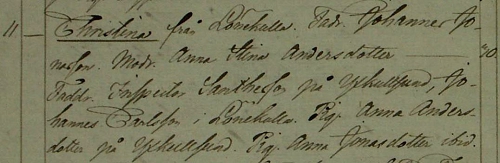 11 — Christina från Lönehult. Fadr. Johannes Jo-
nasson. Modr. Anna Stina Andersdotter — "30.
Faddr. Inspector Santhesson på Yxkullsund, Jo-
hannes Carlsson i Lönehult. Pig. Anna Anders-
dotter på Yxkullsund. Pig. Anna Jonasdotter ibid.